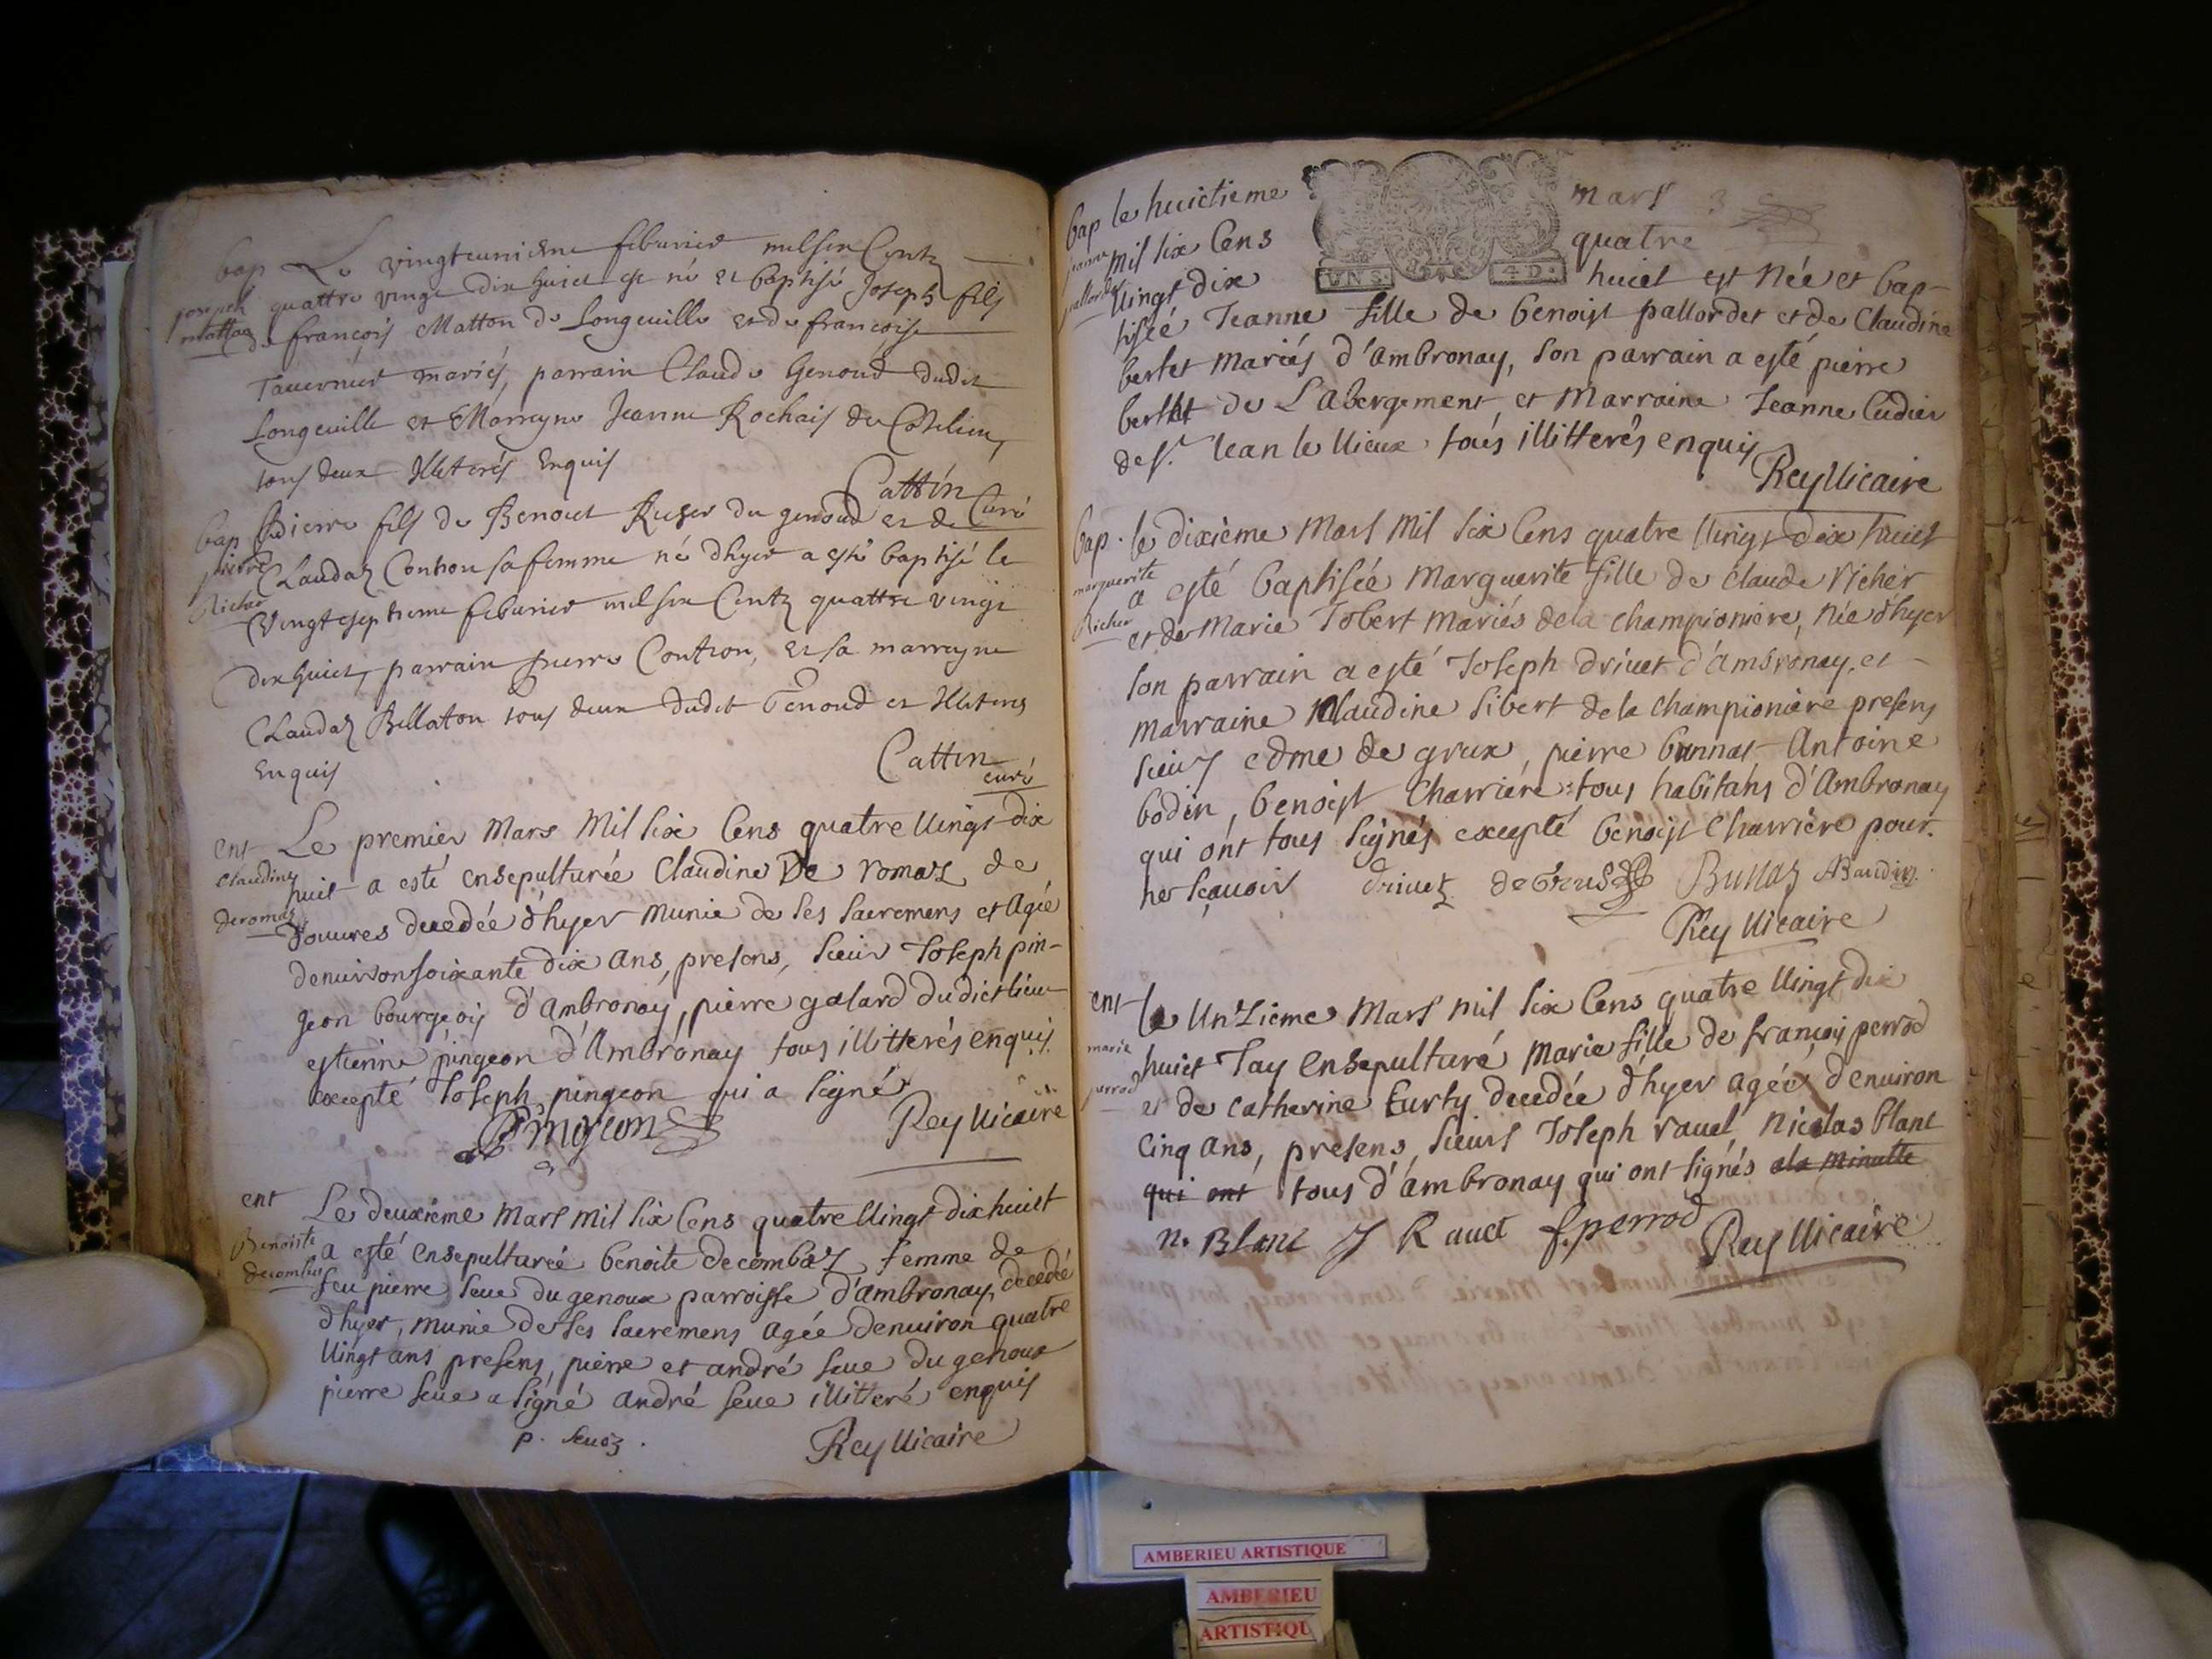 bap Le vingteunième feburier mil six Centz
joseph quattre vingt dix huict est né et baptisé Joseph fils
mattou de françois Matton de Longeville et de françoise
Tauernier mariés, parrain Claude Genoud dudit
Longeuille et Marrayne Jeanne Rochais de
tous deux Illiterés Enquis
Cattin Curé
bap Pierre fils de Benoict du genoud et de
pierre Claudaz Contron sa femme né dhyer a esté baptisé le
Richer Vingtseptieme feburier mil six Centz quattre vingt
dix huict, parrain pierre Contron, et sa marrayne
Claudaz Billaton tous deux dudit Genoud et Illiteres
Enquis
Cattin
curé
ent Le premier Mars Mil six Cens quatre Vingt dix
claudine huit a esté ensepulturée Claudine De romaz de
deromaz douures decedée d'hyer munie de ses sacremens et Agée
denuiron soixante dix ans, presens, sieur Joseph pin-
geon bourgeois d'Ambronay, pierre galard dudict lieu
estienne pingeon d'Ambronay tous illitterés enquis
excepté Joseph pingeon qui a signé
Pingeon Rey Vicaire
ent Le deuxième Mars mil six Cens quatre Vingt dix huict
Benoiste a esté ensepulturée benoite decombaz femme de
decombes feu pierre seue du genoux parroisse d'ambronay, decedé
d'hyer, munie de ses sacremens agée denuiron quatre
Vingt ans presens, pierre et andré seue du genoux
pierre seue a signé andré seue illitteré enquis
p. seuoz . Rey Vicaire
bap le huictieme mars 3
jeanne mil six Cens quatre
pallordet Vingt dix VN S. 4 D. huict est Née et bap-
tisée Jeanne fille de benoist pallordet et de Claudine
berlet Mariés d'Ambronay, son parrain a esté pierre
de L'abergement, et Marraine Jeanne Cudier
de st. Jean le Vieux tous illitterés enquis
Rey Vicaire
bap. le dixième Mars Mil six Cens quatre Vingt dix huict
marguerite a esté baptisée Marguerite fille de claude richer
Richer et de Marie Jobert mariés de la championière, née d'hyer
son parrain a esté Joseph driuet d'ambronay. et
marraine Claudine sibert de la championière presens
sieurs edme de grux, pierre bunnat Antoine
bodin, benoist Charrière : tous habitans d'Ambronay
qui ont tous signés excepté benoist Charrière pour.
ne sçauoir driuet de Greus Bunaz ABaudin
Rey Vicaire
ent le Unzieme Mars mil six Cens quatre Vingt dix
marie huict Jay ensepulturé Marie fille de françois perrod
perrod et de catherine Eurty decedée d'hyer agée denuiron
Cinq ans, presens, sieurs Joseph rauet, Nicolas blanc
qui ont tous d'ambronay qui ont signés a la minutte
n. Blanc J Rauet f. perrod Rey Vicaire
AMBERIEU ARTISTIQUE
AMBERIEU
ARTISTIQU